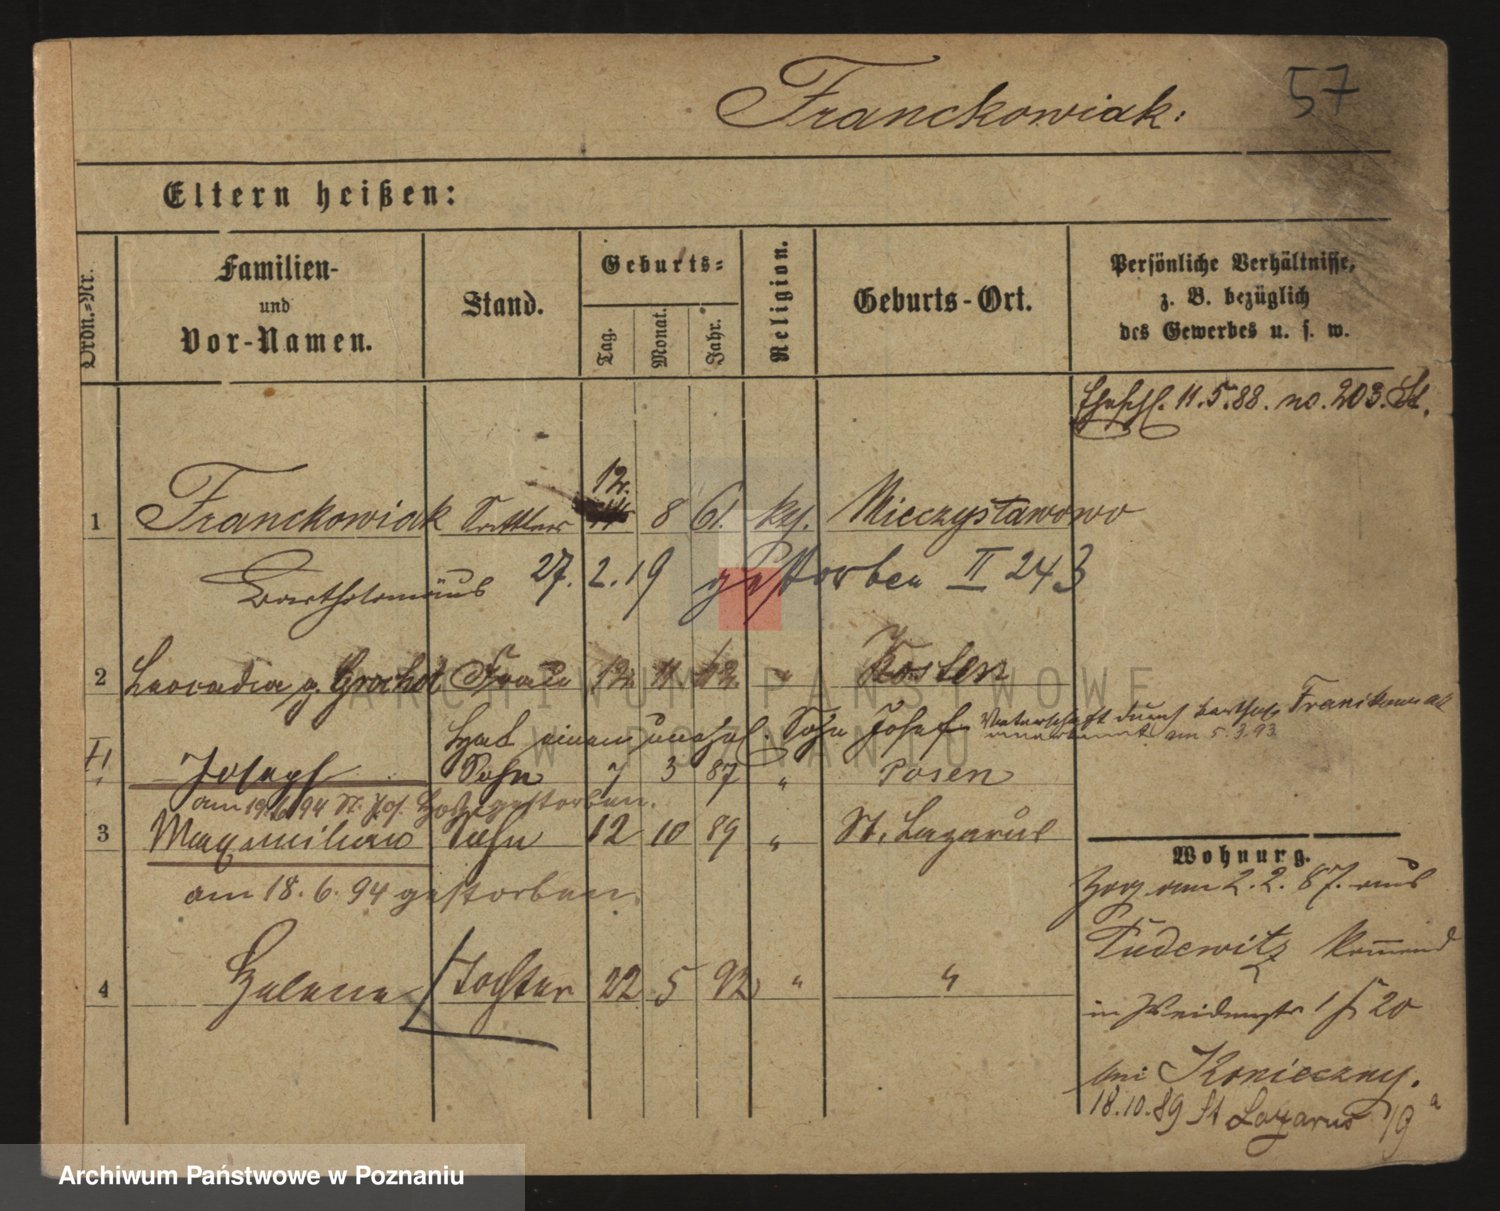 57
Franckowiak.
Eltern heißen:
Ordn.-Nr.
Familien-
und
Vor-Namen.
Stand.
Geburts-
Tag.
Monat.
Jahr.
Religion.
Geburts-Ort.
Persönliche Verhältnisse,
z. B. bezüglich
des Gewerbes u. s. w.
Ehschl. 11.5.88. no. 203. St.
12.
1 Franckowiak Sattler 8 61. kt. Mieczysławowo
Bartholomäus 27.2.19 gestorben II 243
2 Leocadia g. Grochot Frau 12 11 Kosten
Hat einen unehel. Sohn Josef Vaterschaft durch Barthol. Franckowiak
anerkannt am 5.3.93
Joseph Sohn 7 3 87 " Posen
am 19.6.94 St. Jos. gestorben.
3 Maxymilian Sohn 12 10 89 " St. Lazarus
am 18.6.94 gestorben.
4 Helena Tochter 22 5 92 " "
Wohnung.
Zog am 2.2.87. aus
Pudewitz kommend
in Weidenstr 1 20
bei Konieczny.
18.10.89 St Lazarus 19a
ARCHIWUM PAŃSTWOWE
W POZNANIU
Archiwum Państwowe w Poznaniu